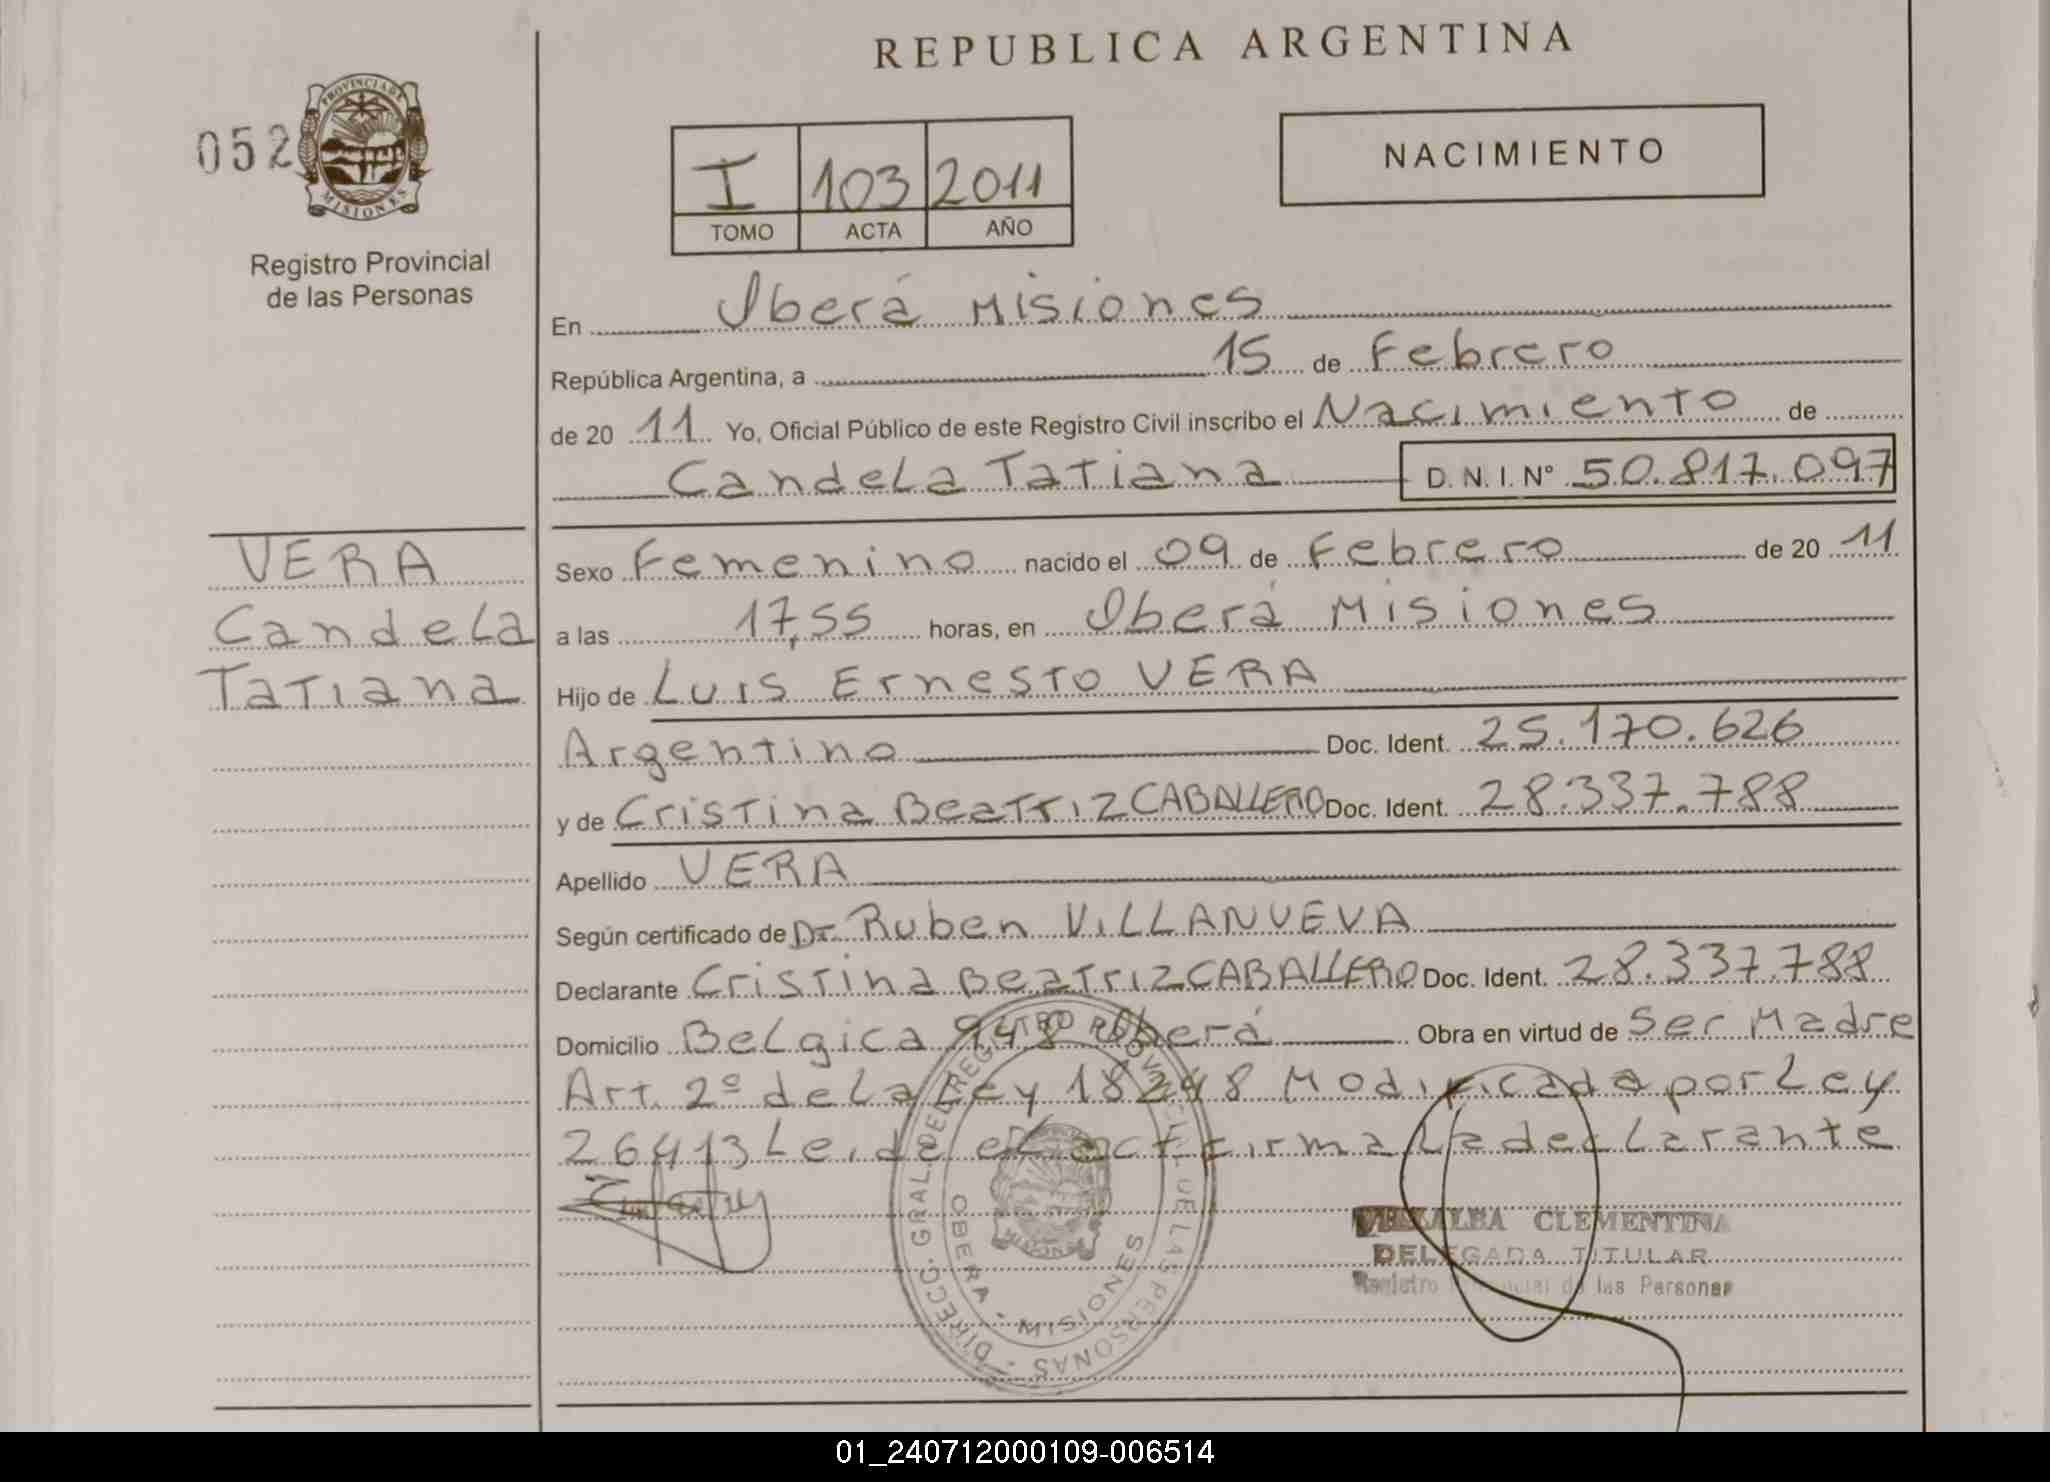 REPUBLICA ARGENTINA
052
PROVINCIA DE
MISIONES
Registro Provincial
de las Personas
NACIMIENTO
I 103 2011
TOMO ACTA AÑO
En Oberá Misiones
República Argentina, a 15 de Febrero
de 20 11 Yo, Oficial Público de este Registro Civil inscribo el Nacimiento de
Candela Tatiana D. N. I. N° 50.817.097
VERA
Candela
Tatiana
Sexo Femenino nacido el 09 de Febrero de 20 11
a las 17,55 horas, en Oberá Misiones
Hijo de Luis Ernesto VERA
Argentino Doc. Ident. 25.170.626
y de Cristina Beatriz CABALLERO Doc. Ident. 28.337.788
Apellido VERA
Según certificado de Dr. Ruben VILLANUEVA
Declarante Cristina Beatriz CABALLERO Doc. Ident. 28.337.788
Domicilio Belgica 948 Oberá Obra en virtud de Ser Madre
Art. 2º de la Ley 18248 Modificada por Ley
26413 Leida el act firma La declarante
DIRECC. GRAL. DEL REGISTRO PROVINCIAL DE LAS PERSONAS
OBERA - MISIONES
VILLALBA CLEMENTINA
DELEGADA TITULAR
Registro Provincial de las Personas
01_240712000109-006514